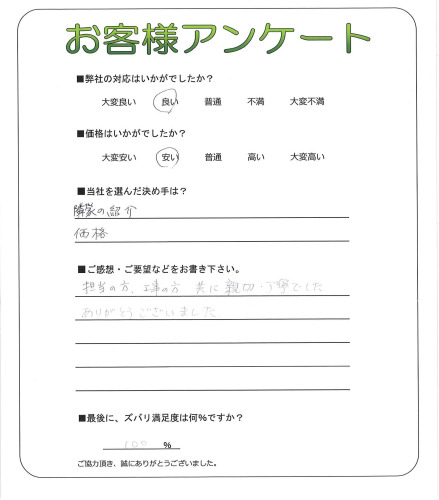 お客様アンケート
■弊社の対応はいかがでしたか？
大変良い 良い 普通 不満 大変不満
■価格はいかがでしたか？
大変安い 安い 普通 高い 大変高い
■当社を選んだ決め手は？
隣家の紹介
価格
■ご感想・ご要望などをお書き下さい。
担当の方、工事の方 共に 親切・丁寧でした
ありがとうございました
■最後に、ズバリ満足度は何％ですか？
100 ％
ご協力頂き、誠にありがとうございました。